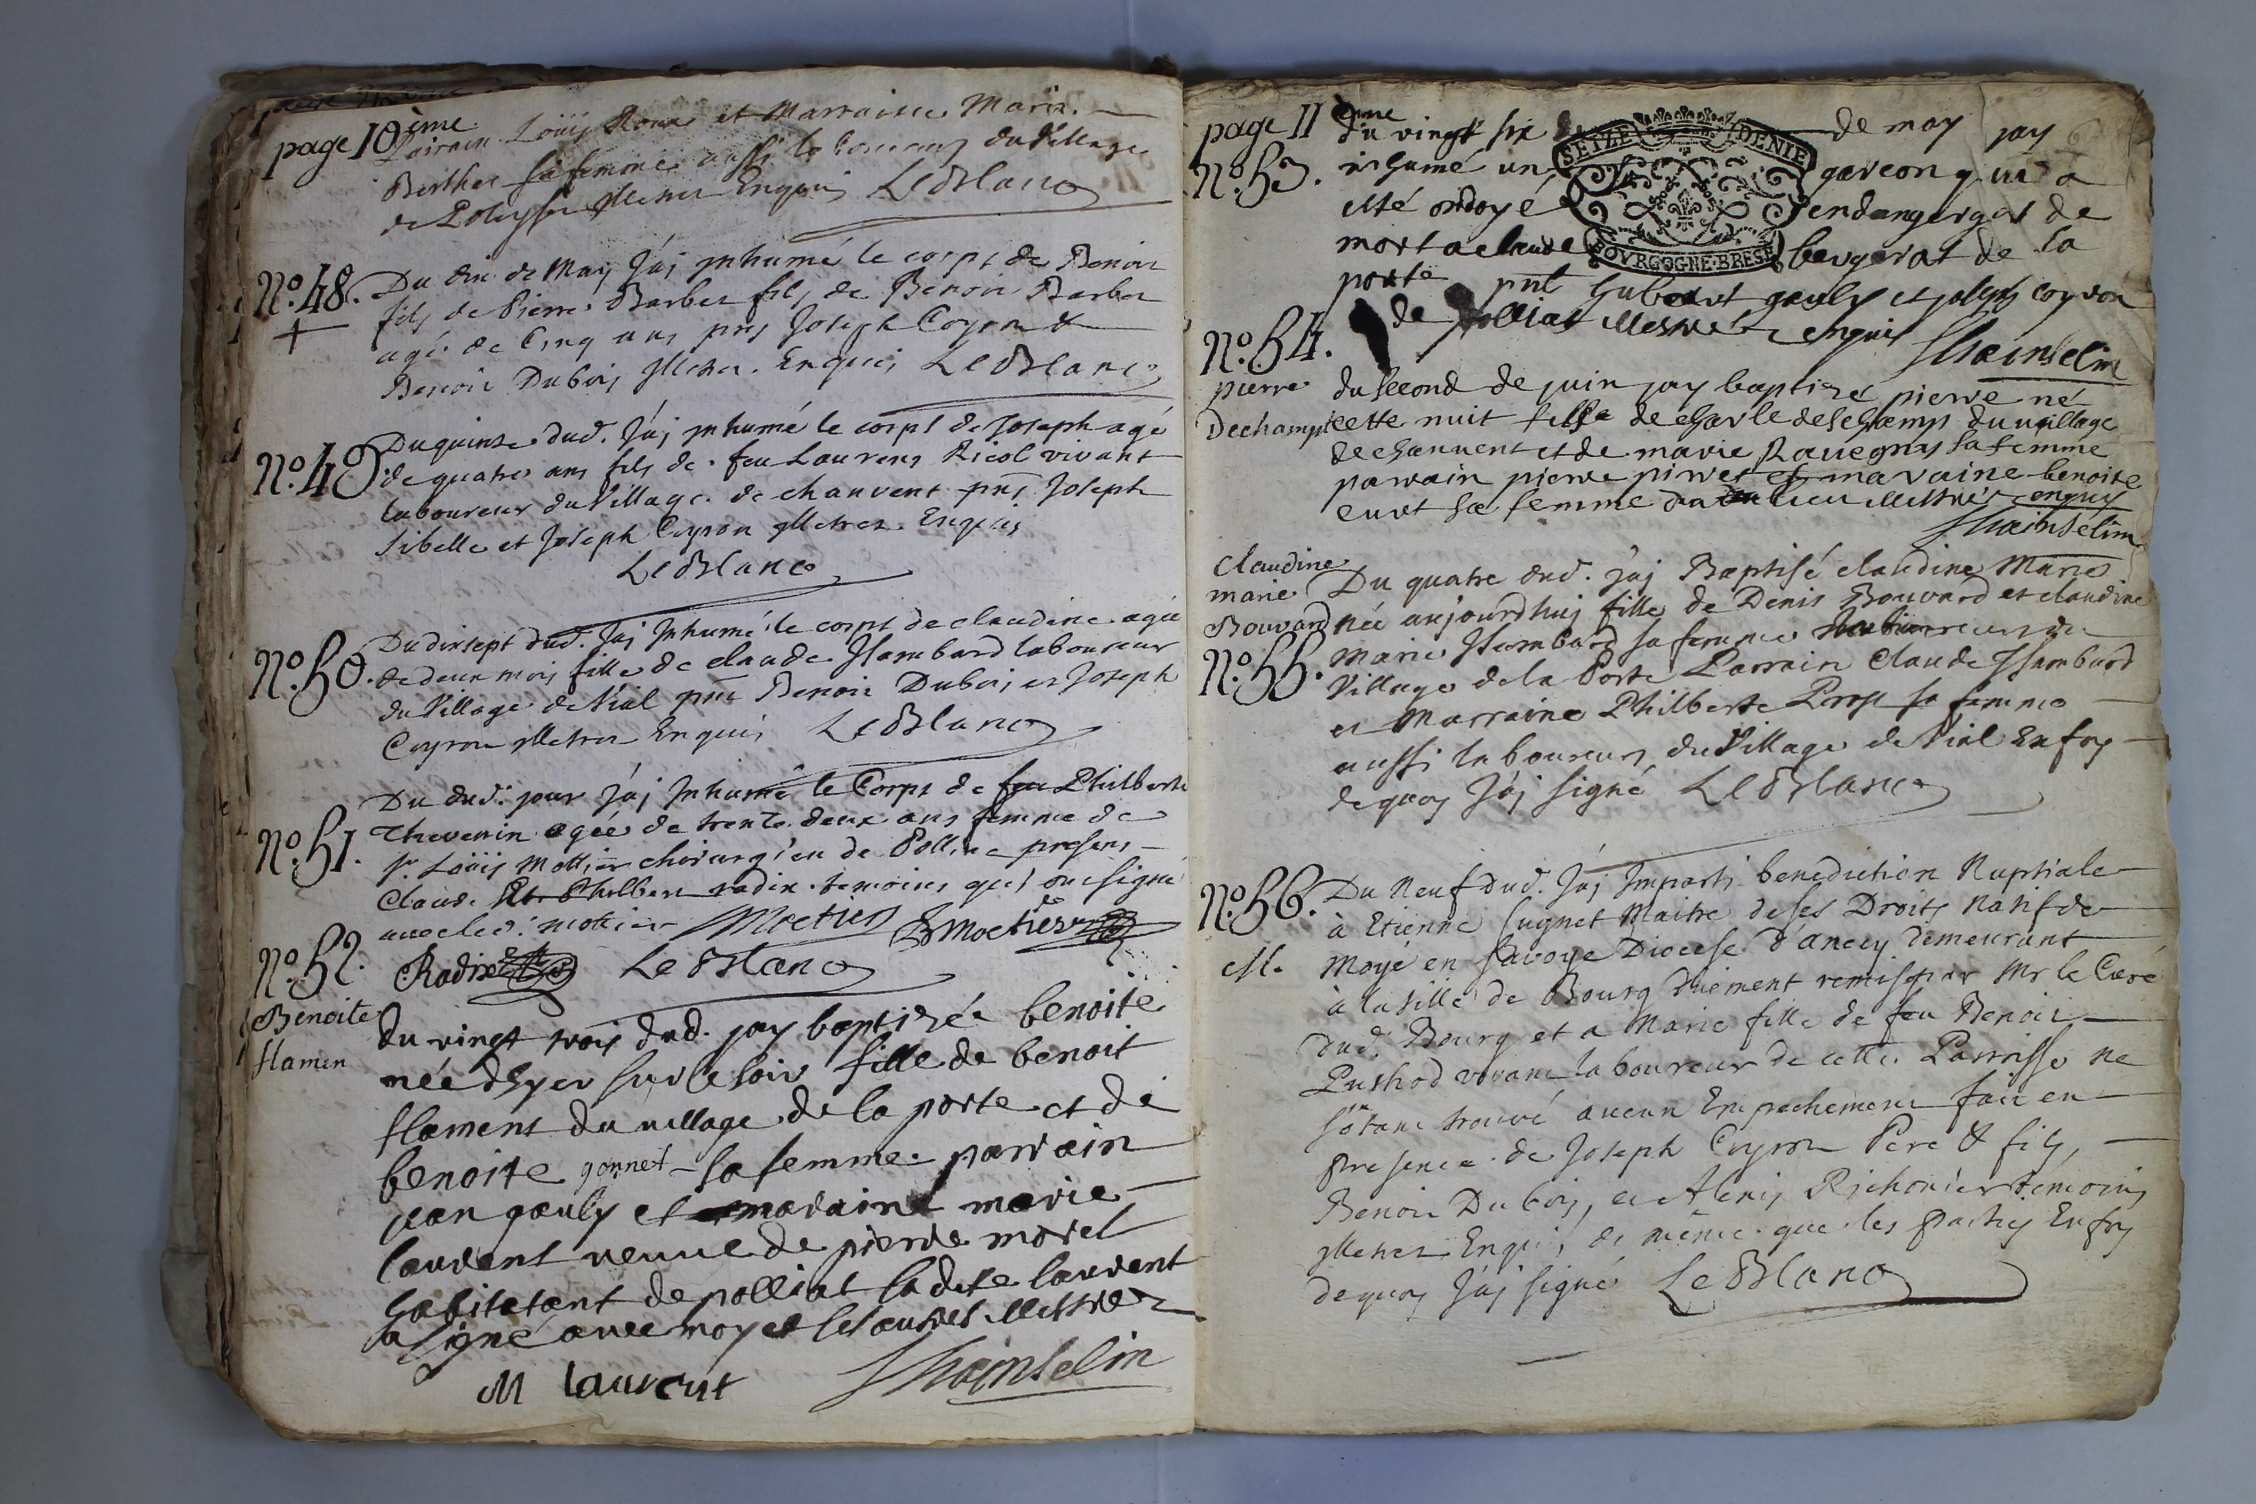 page 10ème
Parrain Loüis Roux et Marraine Marie
Berthet sa femme aussi laboureurs du Village
de Poleysu illeteres Enquis LeBlanc
No. 48. Du dix de May J'áj jnhumé le corps de Benoit
fils de Pierre Barbet fils de Benoit Barbet
agé de Cinq ans pns Joseph Coyron &
Benoit Dubois jlletrez Enquis LeBlanc
No. 49 Du quinze dud. J'áj jnhumé le corps de Joseph agé
de quatre ans fils de feu Laurens Ricol vivant
laboureur du Village de chanvent pns Joseph
Sibelle et Joseph Coyron jlletrez Enquis
LeBlanc
No. 50. Du dixsept dud. J'áj Jnhumé le corps de claudine agée
de deux mois fille de claude Jsambard laboureur
du Village de Vial pns Benoit Dubois et Joseph
Coyron jlletrez Enquis LeBlanc
No. 51. Du dud. jour J'áj Jnhumé le Corps de feu Philberte
Thevenin agée de trente deux ans femme de
Sr. Loüis Mottier chirurgien de Polliac presens
Claude et Philbert radix temoins qui ont signé
avec led. mottier Moetier B Moetier
No. 52. Radix LeBlanc
Benoite
flamen
du vingt trois dud. jay baptizée benoite
née d'hyer sur le soir fille de benoit
flament du village de la porte et de
benoite gonnet sa femme parrain
jean gauly et maraine marie
laurent veuve de pierre morel
habitant de polliat ladite laurent
a signé avec moy et les autres illettrez
M laurent Chainselin
page 11eme
SEIZE DENIE
BOURGOGNE·BRESE
No. 53. du vingt six de may jay
inhumé un garcon qui a
esté ondoyé endanger de
mort a claude bergerat de la
porte pnt hubert gauly et joseph coyron
No. 54. de polliat illestrez enquis Chainselin
pierre
Dechamp
du second de juin jay baptizé pierre né
cette nuit fils de charle deschamp du village
de chanvent et de marie Ravegnas sa femme
parrain pierre pirret et maraine benoite
curt sa femme du lieu illettrez enquis
Chainselin
claudine
marie
Bouvard
No. 55.
Du quatre dud. j'áj Baptisé claudine Marie
née aujourdhuj fille de Denis Bouvard et claudine
Marie Jsambard sa femme laboureurs du
Village de la Porte Parrain Claude Jsambard
et Marraine Philberte Prost sa femme
aussi laboureurs du Village de Vial En foy
de quoy J'áj signé LeBlanc
No. 56.
M.
Du Neuf dud. J'áj Jmparti benediction Nuptiale
à Etienne Sugnet Maitre de ses Droits Natif de
Moyé en Savoye Diocese d'ancey demeurant
à la Ville de Bourg Düement remis par Mr le Curé
dud. Bourg et a Marie fille de feu Benoit
Pushod vivant laboureur de cette Parroisse ne
s'étant trouvé aucun Empechement fait en
presence de Joseph Coyron Pere & fils,
Benoit Dubois, et Alexis Richonier témoins
jlletrez Enquis, de même que les parties En foy
de quoy J'áj signé LeBlanc